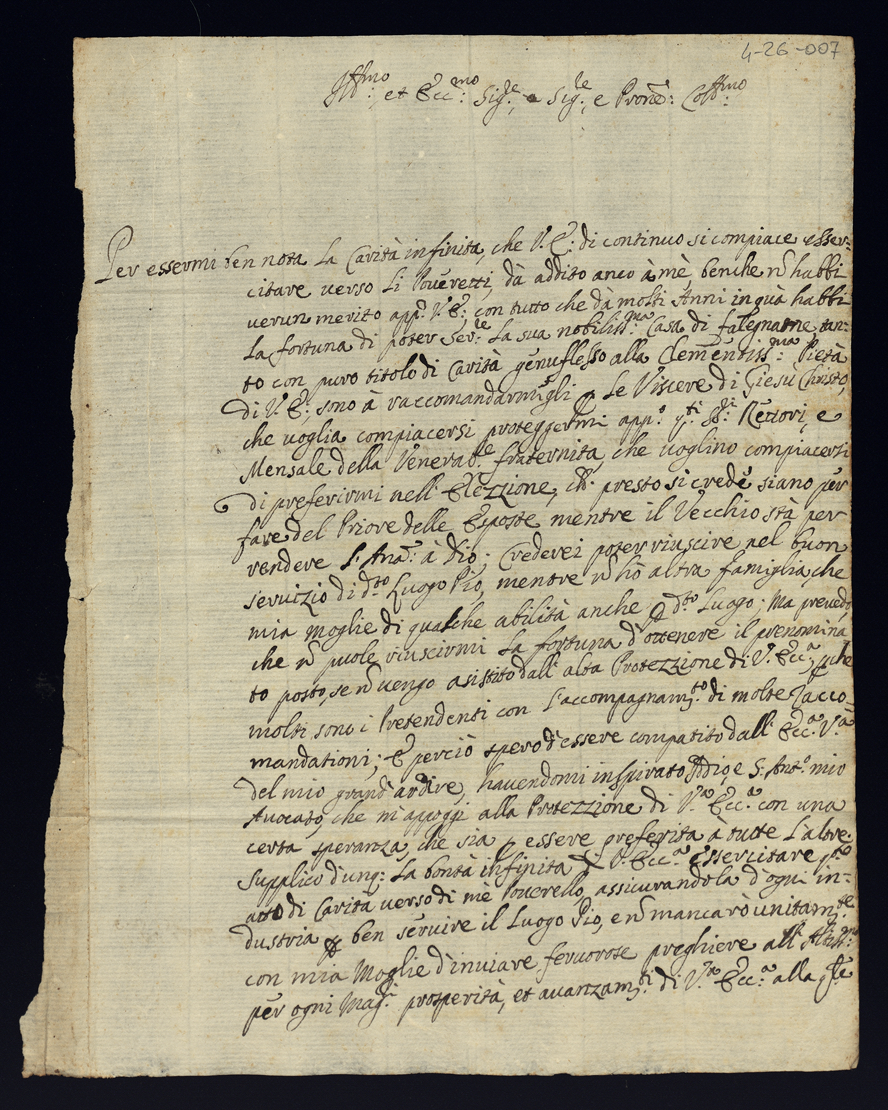 4-26-007
Ill.mo et Ecc.mo Sig.re, Sig.re, e Prone: Coll.mo
Per essermi ben nota La Carità infinita, che V. E: di continuo si compiace esser-
citare verso Li Poveretti, dà addito anco à mè benche n habbi
verun merito app.o V. E:, con tutto che dà molti Anni in quà habbi
La fortuna di poter Ser.re La sua nobiliss.ma Casa di falegname, tan-
to con puro titolo di Carità genuflesso alla Clementiss.ma Pietà
di V. E:, sono à raccomandarmigli p Le Viscere di Giesù Christo,
che voglia compiacersi proteggermi app.o q.ti SS.ri Rettori, e
Mensale della Venerab.le fraternita, che voglino compiacersi
di preferirmi nell' Elezzione, ch. presto si crede siano per
fare del Priore delle Esposte mentre il Vecchio stà per
rendere l' Ana: à Dio. Crederei poter riuscire nel buon
servizio di d.to Luogo Pio, mentre n hò altra famiglia, che
mia Moglie di qualche abilità anche p d.to Luogo; Ma prevedo,
che n puole riuscirmi La fortuna d'ottenere il prenomina-
to posto, se n vengo asistito dall' alta Protezzione di V. Ecc.a, p che
molti sono i Pretendenti con L'accompagnam.to di molte racco-
mandationi; E perciò spero d'essere compatito dall' Ecc.a V.a
del mio grand' ardire, havendomi inspirato Iddio, e S. Ant.o mio
Avocato, che m'appoggi alla Protezzione di V.a Ecc.a con una
certa speranza, che sia p essere preferita à tutte L'altre.
Supplico d'unq: La bontà infinita di V. Ecc.a essercitare q.to
atto di Carità verso di mè Poverello, assicurandola d'ogni in-
dustria p ben servire il Luogo Pio, e n mancarò unitam.te
con mia Moglie d'inviare fervorose preghiere all' Altiss.mo
per ogni Mag.r prosperità, et avanzam.ti di V.a Ecc.a alla q.le